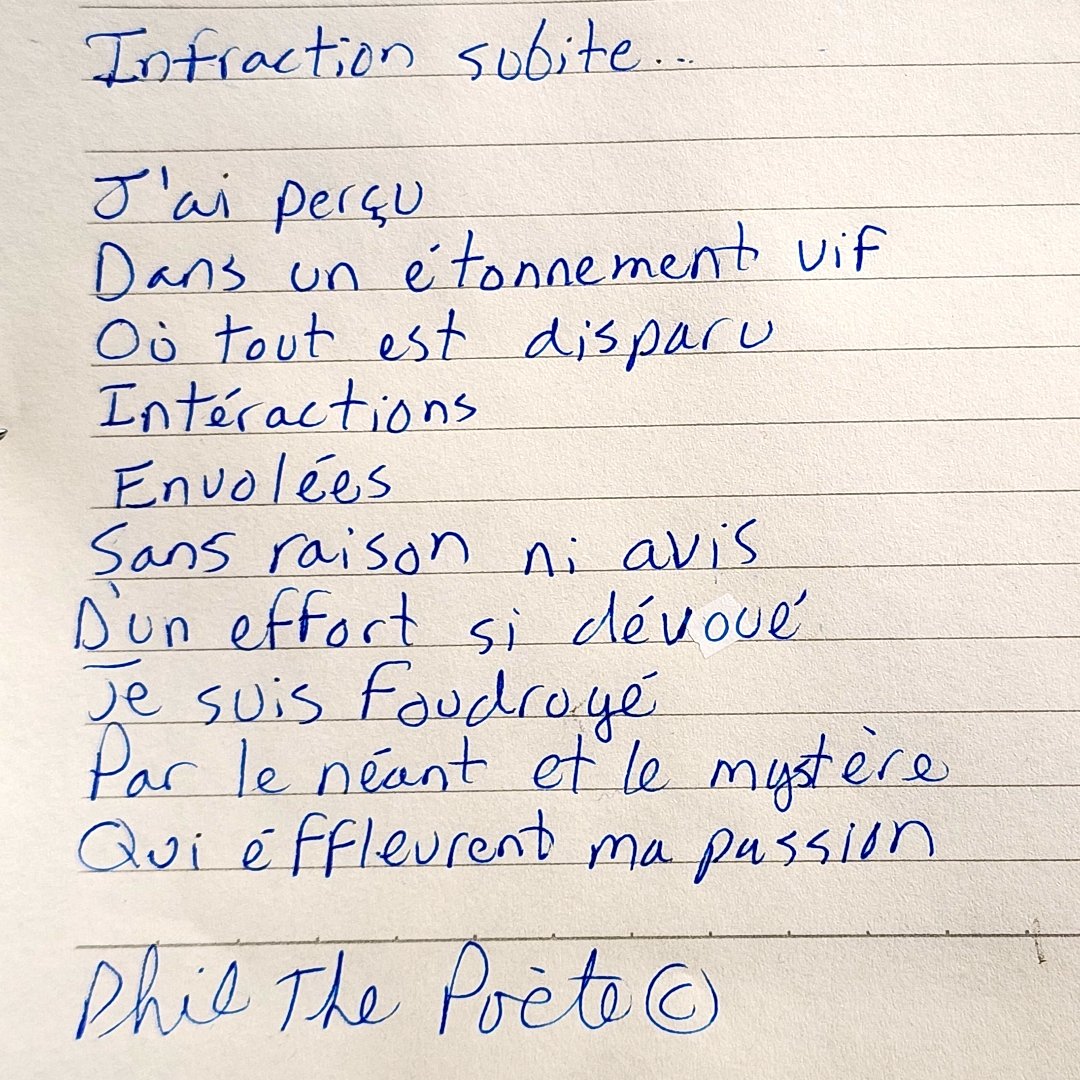 Infraction subite...
J'ai perçu
Dans un étonnement vif
Où tout est disparu
Intéractions
Envolées
Sans raison ni avis
D'un effort si dévoué
Je suis foudroyé
Par le néant et le mystère
Qui éffleurent ma passion
Phil The Poète ©